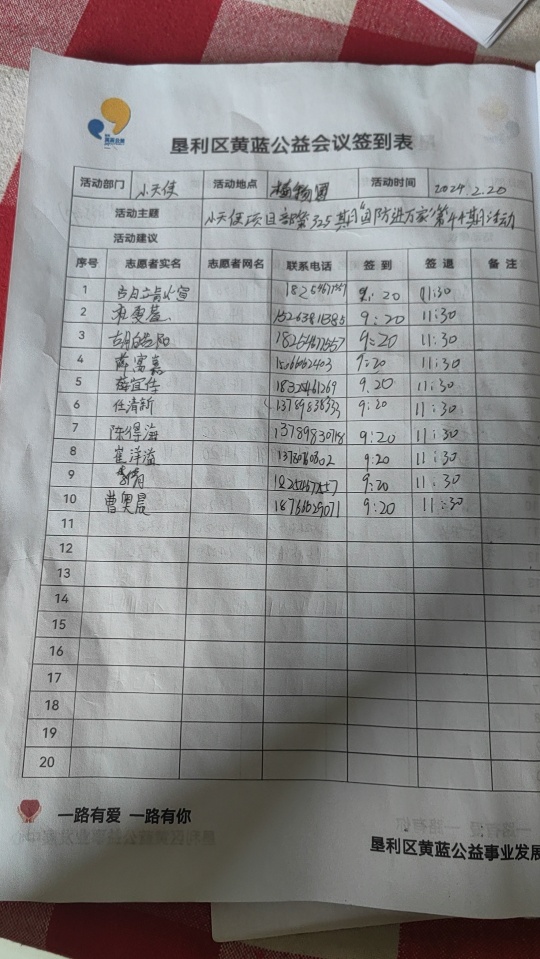 垦利区黄蓝公益会议签到表
活动部门 小天使 活动地点 植物园 活动时间 2024.2.20
活动主题 小天使项目部第325期"国防进万家"第44期活动
活动建议
序号 志愿者实名 志愿者网名 联系电话 签到 签退 备注
1 9:20 11:30
2 9:20 11:30
3 9:20 11:30
4 9:20 11:30
5 薛宜佳 18324461269 9.20 11:30
6 任清新 9:20 11:30
7 陈得海 13789830718 9:20 11:30
8 崔洋溢 9:20 11:30
9 9:20 11:30
10 曹奥晨 18766029071 9:20 11:30
11
12
13
14
15
16
17
18
19
20
一路有爱 一路有你
垦利区黄蓝公益事业发展